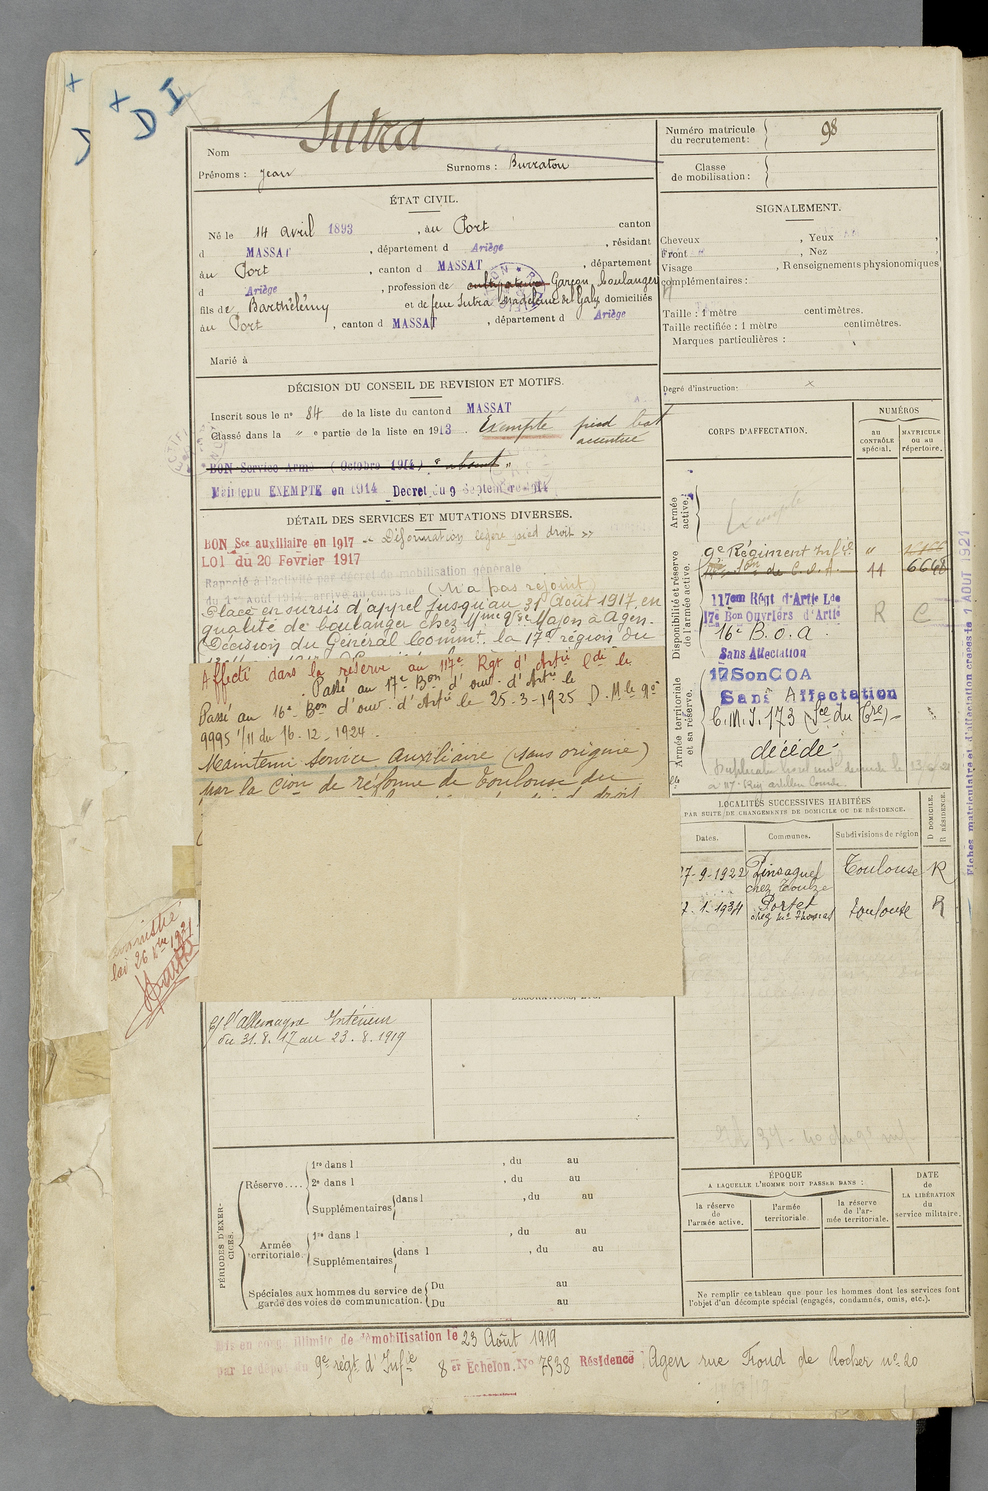 + D I
Nom Sutra
Prénoms : Jean Surnoms : Burratou
Numéro matricule du recrutement : 98
Classe de mobilisation :
ÉTAT CIVIL.
Né le 14 avril 1893, au Port canton
d MASSAT, département d Ariège, résidant
au Port, canton d MASSAT, département
d Ariège, profession de cultivateur Garçon boulanger
fils de Barthélémy et de feue Sutra Madeleine del Galy domiciliés
au Port, canton d MASSAT, département d Ariège
Marié à
SIGNALEMENT.
Cheveux , Yeux ,
Front , Nez ,
Visage , Renseignements physionomiques
complémentaires :
Taille : 1 mètre centimètres.
Taille rectifiée : 1 mètre centimètres.
Marques particulières :
Degré d'instruction: x
DÉCISION DU CONSEIL DE REVISION ET MOTIFS.
Inscrit sous le n° 84 de la liste du canton d MASSAT
Classé dans la " e partie de la liste en 1913. Exempté pied bot
accentué
BON Service Armé (Octobre 1914) "absent"
Maintenu EXEMPTE en 1914 Decret du 9 Septembre 1914
DÉTAIL DES SERVICES ET MUTATIONS DIVERSES.
BON Sce auxiliaire en 1917 - "Déformation légère pied droit"
LOI du 20 Fevrier 1917
Rappelé à l'activité par décret de mobilisation générale
du 1er Août 1914, arrivé au corps le (N'a pas rejoint)
Placé en sursis d'appel jusqu'au 31 Août 1917, en
qualité de boulanger chez Mme Vve Majon à Agen.
Décision du Général Commt. la 17e région du
Affecté dans la réserve au 117e Rgt d'Artie Lde le
Passé au 17e Bon d'ouv. d'Artie le
Passé au 16e Bon d'ouv. d'Artie le 25-3-1925 D. M le No
9995 1/11 du 16-12-1924.
Maintenu service auxiliaire (sans origine)
par la Cion de réforme de Toulouse du
droit
CORPS D'AFFECTATION.
NUMÉROS
au CONTRÔLE spécial.
MATRICULE ou au répertoire.
Armée active.
Exempté
Disponibilité et réserve de l'armée active.
9e Régiment Infie "
Son de C.O.A. 11
117em Régt d'Artie Lde
17e Bon Ouvriers d'Artie R C
16e B.O.A.
Sans Affectation
Armée territoriale et sa réserve.
17 Son COA
Sans Affectation
C.M.I. 173 (Sce du Tre) -
décédé
LOCALITÉS SUCCESSIVES HABITÉES
PAR SUITE DE CHANGEMENTS DE DOMICILE OU DE RÉSIDENCE.
Dates. Communes. Subdivisions de région D DOMICILE. R RÉSIDENCE.
7-9-1922 Pinsaguel Toulouse R
chez Touze
7-1-1934 Portet Toulouse R
chez Mr Thomas
Fiches matriculaire et d'affectation créées le 1 AOUT 1921
amnistié
loi 26 Dre 1921
C/ l'Allemagne Intérieur
du 31.8.17 au 23.8.1919
PÉRIODES D'EXERCICES.
Réserve....
1re dans l , du au
2e dans l , du au
Supplémentaires dans l , du au
Armée territoriale.
1re dans l , du au
Supplémentaires dans l , du au
Spéciales aux hommes du service de garde des voies de communication.
Du au
Du au
ÉPOQUE
A LAQUELLE L'HOMME DOIT PASSER DANS :
la réserve de l'armée active.
l'armée territoriale.
la réserve de l'armée territoriale.
DATE de LA LIBÉRATION du service militaire.
Ne remplir ce tableau que pour les hommes dont les services font
l'objet d'un décompte spécial (engagés, condamnés, omis, etc.).
Mis en congé illimité de démobilisation le 23 Août 1919
par le dépôt du 9e régt. d'Infie 8er Echelon. No 7538 Résidence : Agen rue Frond de Rocher no 20